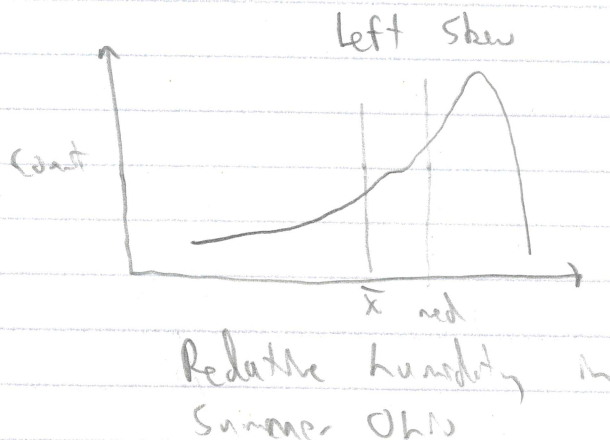 Left Skew
Count
x̄ med
Relative humidity in
Summer Ohio